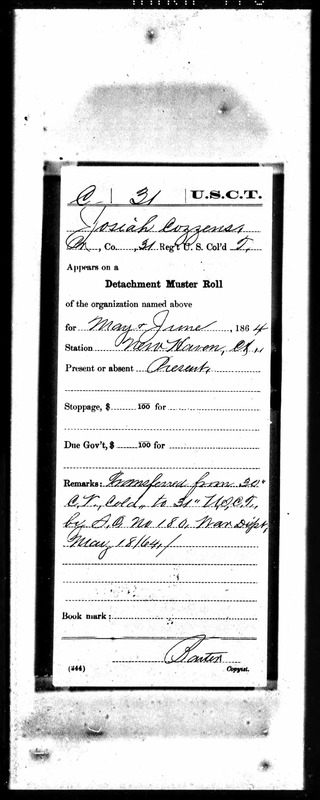 C | 31 | U.S.C.T.
Josiah Cozzens
Pvt., Co. , 31 Reg't U. S. Col'd T.
Appears on a
Detachment Muster Roll
of the organization named above
for May & June, 1864
Station New Haven, Ct.,
Present or absent Present,
Stoppage, $ 100 for
Due Gov't, $ 100 for
Remarks: Transferred from 30"
C.V., Cold., to 31" U.S.C.T.,
by S.O. No 180, War Dept,
May 18/64,/
Book mark:
Baxter
(344) Copyist.